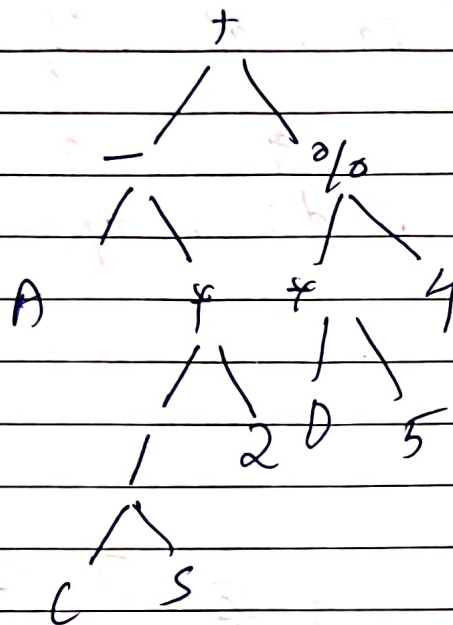 +
- %
A * * 4
/ 2 D 5
C 5